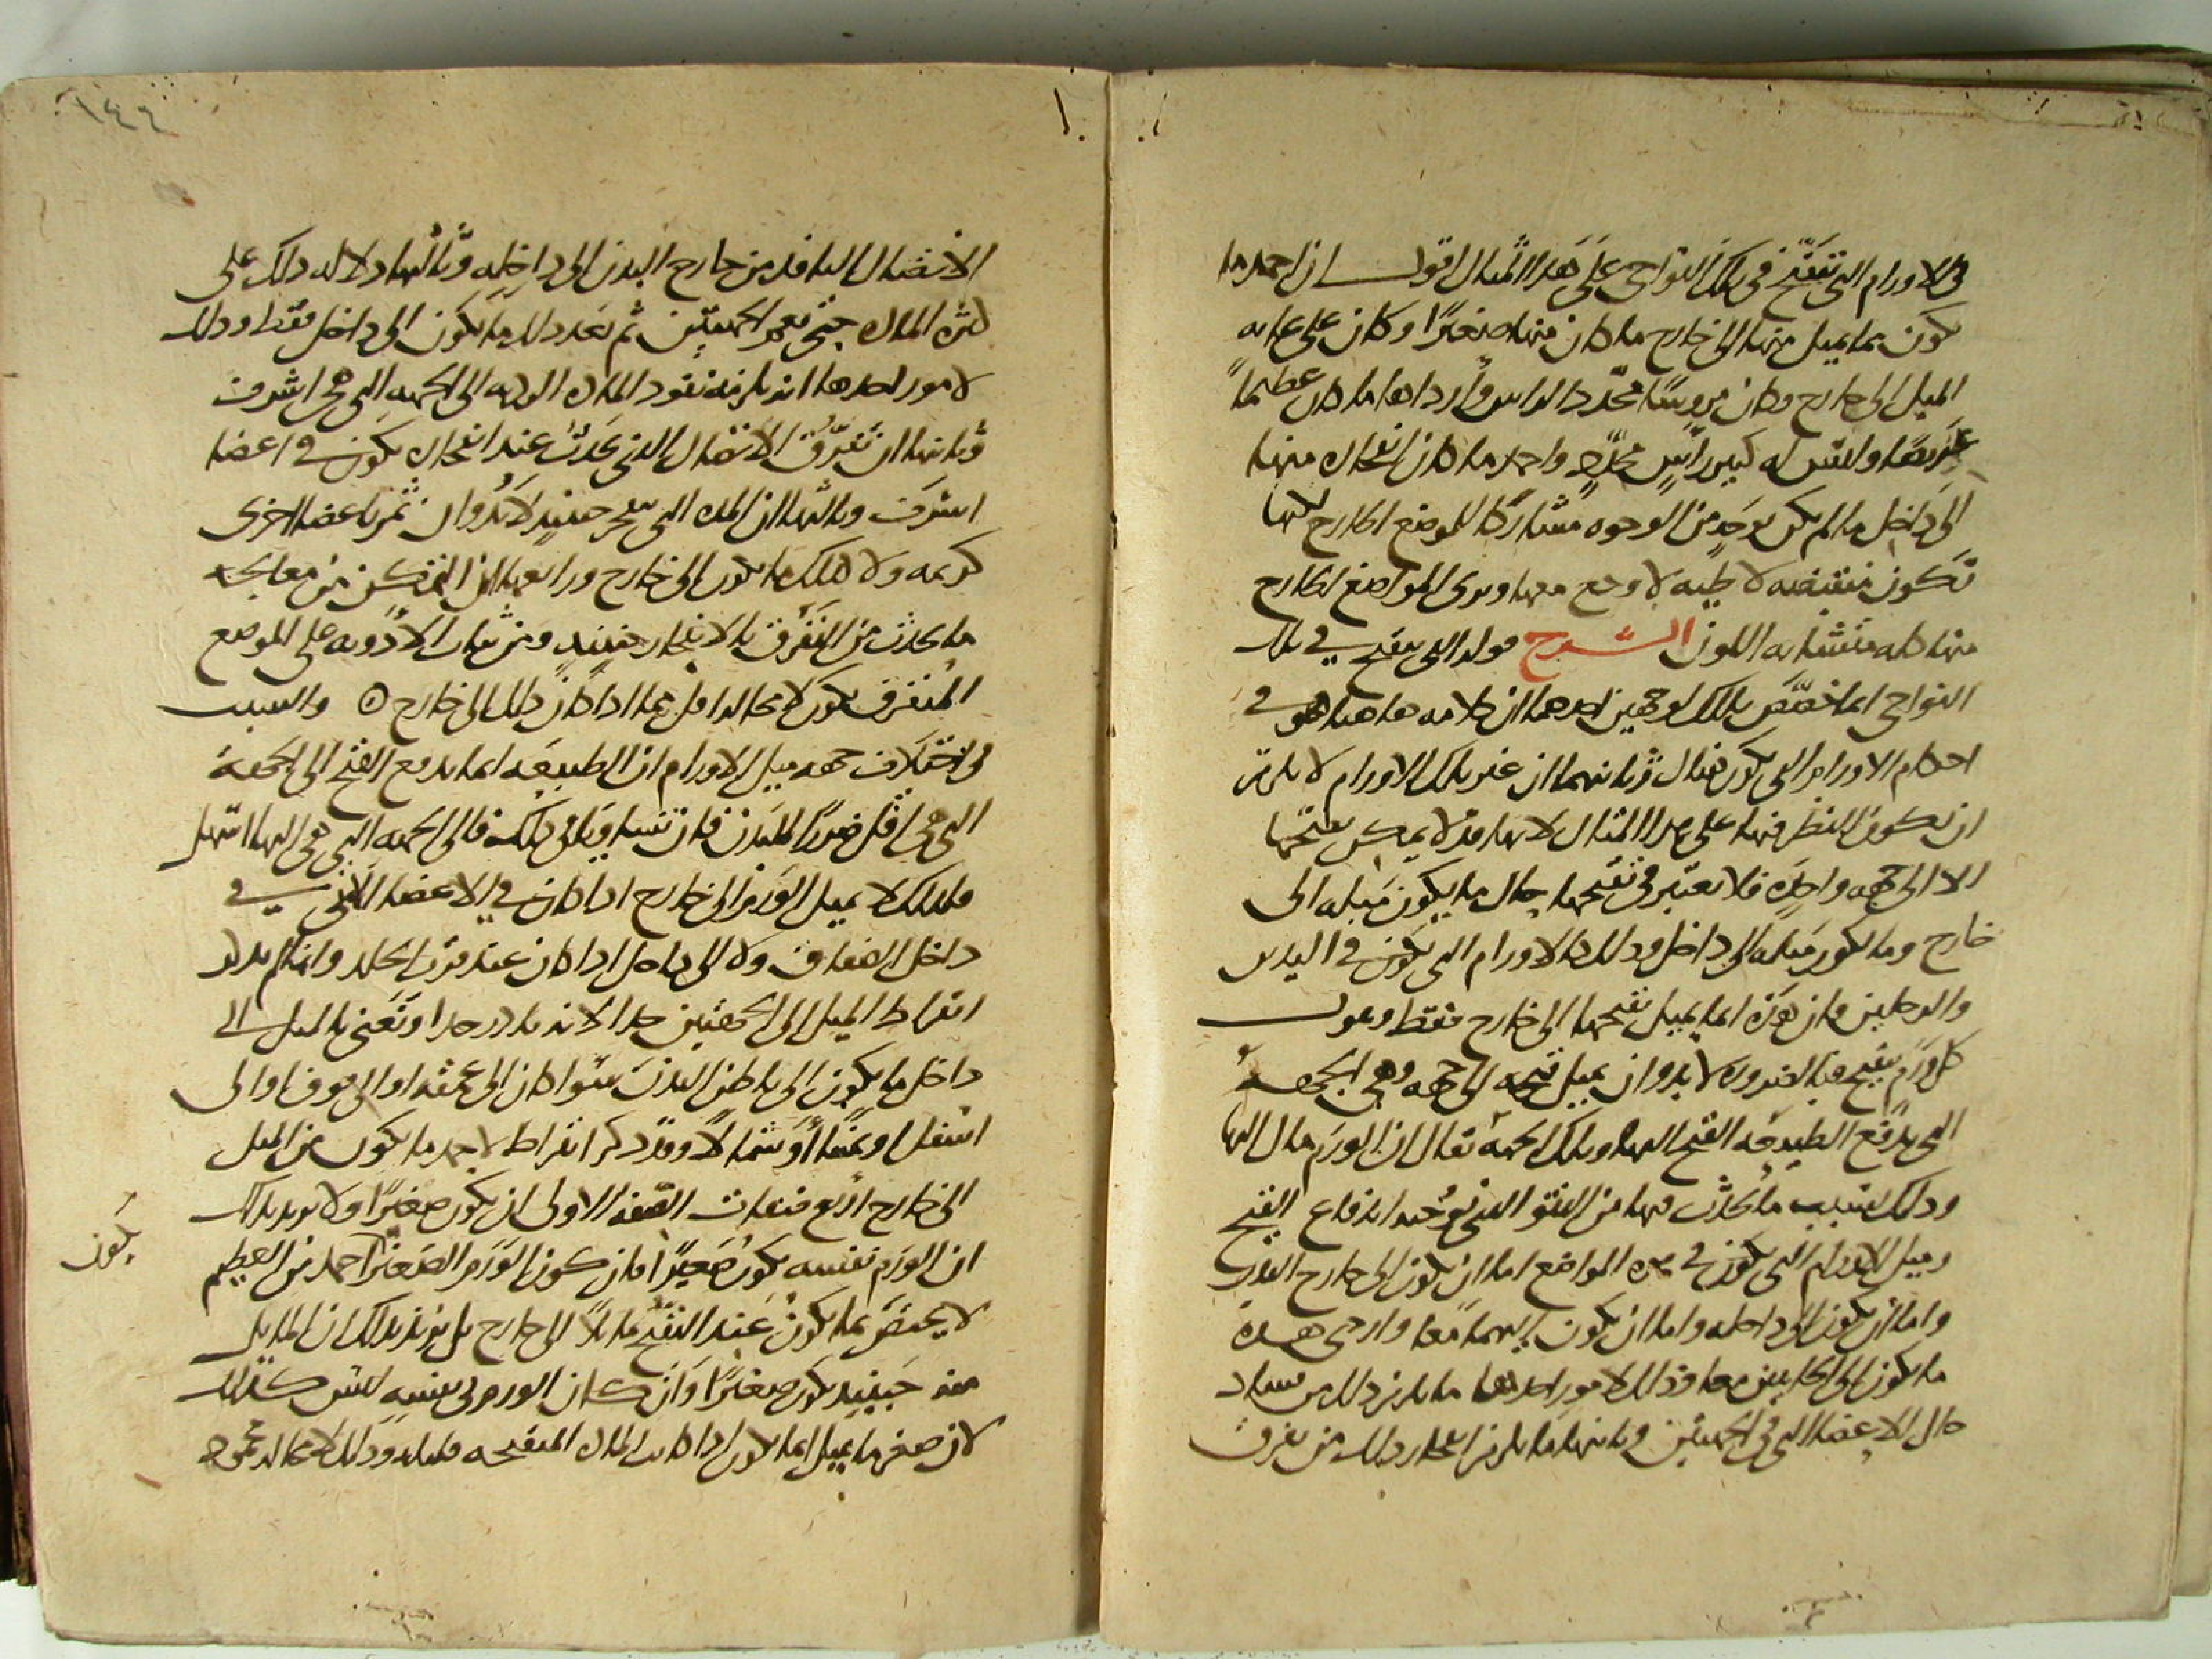 في الاورام التي تتقيح في تلك النواحي على هذا المثال اقول ان احمد ما
يكون مما يميل منها الى خارج ما كان منها صغيرًا وكان على غايه
الميل الى خارج وكان مروسًا محدد الراس واردأها ما كان عظيمًا
عريضًا وليس له كبير راسٍ محددٍ واحمد ما كان انفجاره منها
الى داخل ما لم يكن بوجه من الوجوه مشاركًا للموضع الخارج لكنها
تكون منقبضه لاطيه لا وجع معها ويرى الموضع الخارج
منها كله متشابه اللون الشرح قوله التي تتقيح في تلك
النواحي انما خصص بذلك لوجهين احدهما ان كلامه هاهنا هو في
احكام الاورام التي تكون هناك وثانيهما ان غير تلك الاورام لا يلزم
ان تكون النظر فيها على هذا المثال لانها قد لا يمكن تقيحها
الا الى جهه واحده فلا يعتبر في تقيحها حال ما يكون ميله الى
خارج وما يكون ميله الى داخل وذلك كالاورام التي تكون في اليدين
والرجلين فان هذه انما يميل تقيحها الى خارج فقط ونقول
كل ورم يتقيح فبالضروره لا بد وان يميل قيحه الى جهه وهي الجهة
التي تدفع الطبيعه القيح اليها وتلك الجهه يقال ان الورم مال اليها
وذلك بسبب ما يحدث فيها من النتو الذي يوجبه اندفاع القيح
وميل الاورام التي تكون في هذه المواضع اما ان يكون الى خارج البدن
واما ان يكون الى داخله واما ان يكون اليهما معًا واردى هذه
ما يكون الى الجانبين معا وذلك لامور احدها ما يلزم ذلك من فساد
حال الاعضا التي في الجهتين وثانيها ما يلزم انفجار ذلك من تفرق
١٤٤
الاتصال النافذ من خارج البدن الى داخله وثالثها دلاله ذلك على
كثره الماده حتى تعم الجهتين ثم بعد ذلك ما يكون الى داخل فقط وذلك
لامور احدها انه يلزمه نفوذ الماده الرديه الى الجهه التي هي اشرف
وثانيها ان تفرق الاتصال الذي يحدث عند انفجاره يكون في اعضا
اشرف وثالثها ان المده التي تنفجر حينيذ لا بد وان تمر باعضا اخرى
كريمه ولا كذلك ما يكون الى خارج ورابعها ان التمكن من معالجه
ما يحدث من التفرق بالانفجار حينيذٍ ومن ثبات الادويه على الموضع
المتفرق يكون لا محاله اقل مما اذا كان ذلك الى خارج ٥ والسبب
في اختلاف جهه ميل الاورام ان الطبيعه انما تدفع القيح الى الجهة
التي هي اقل ضررًا للبدن فان تساويا في ذلك فالى الجهه التي هي اليها اسهل
فلذلك لا يميل الورم الى خارج اذا كان في الاعضا التي في
داخل الصفاق ولا الى داخل اذا كان عند قرب الجلد وانما لم يذكر
ابقراط الميل الى الجهتين جدا لانه نادر جدا ونعني بالميل الى
داخل ما يكون الى باطن البدن سوا كان الى عمقه او الى فوق او الى
اسفل او يمينًا او شمالًا وقد ذكر ابقراط لاحمد ما يكون من الميل
الى خارج اربع صفات الصفه الاولى ان يكون صغيرًا ولا يريد بذلك
ان الورم نفسه يكون صغيرًا فان كون الورم الصغير احمد من العظيم
يكون
لا يختص بما يكون عند التقيح مايلًا الى خارج بل يريد بذلك ان المايل
منه حينيذ يكون صغيرًا وان كان الورم في نفسه ليس كذلك
لان صغر ما يميل انما يكون اذا كانت الماده المتقيحه قليله وذلك لا محاله